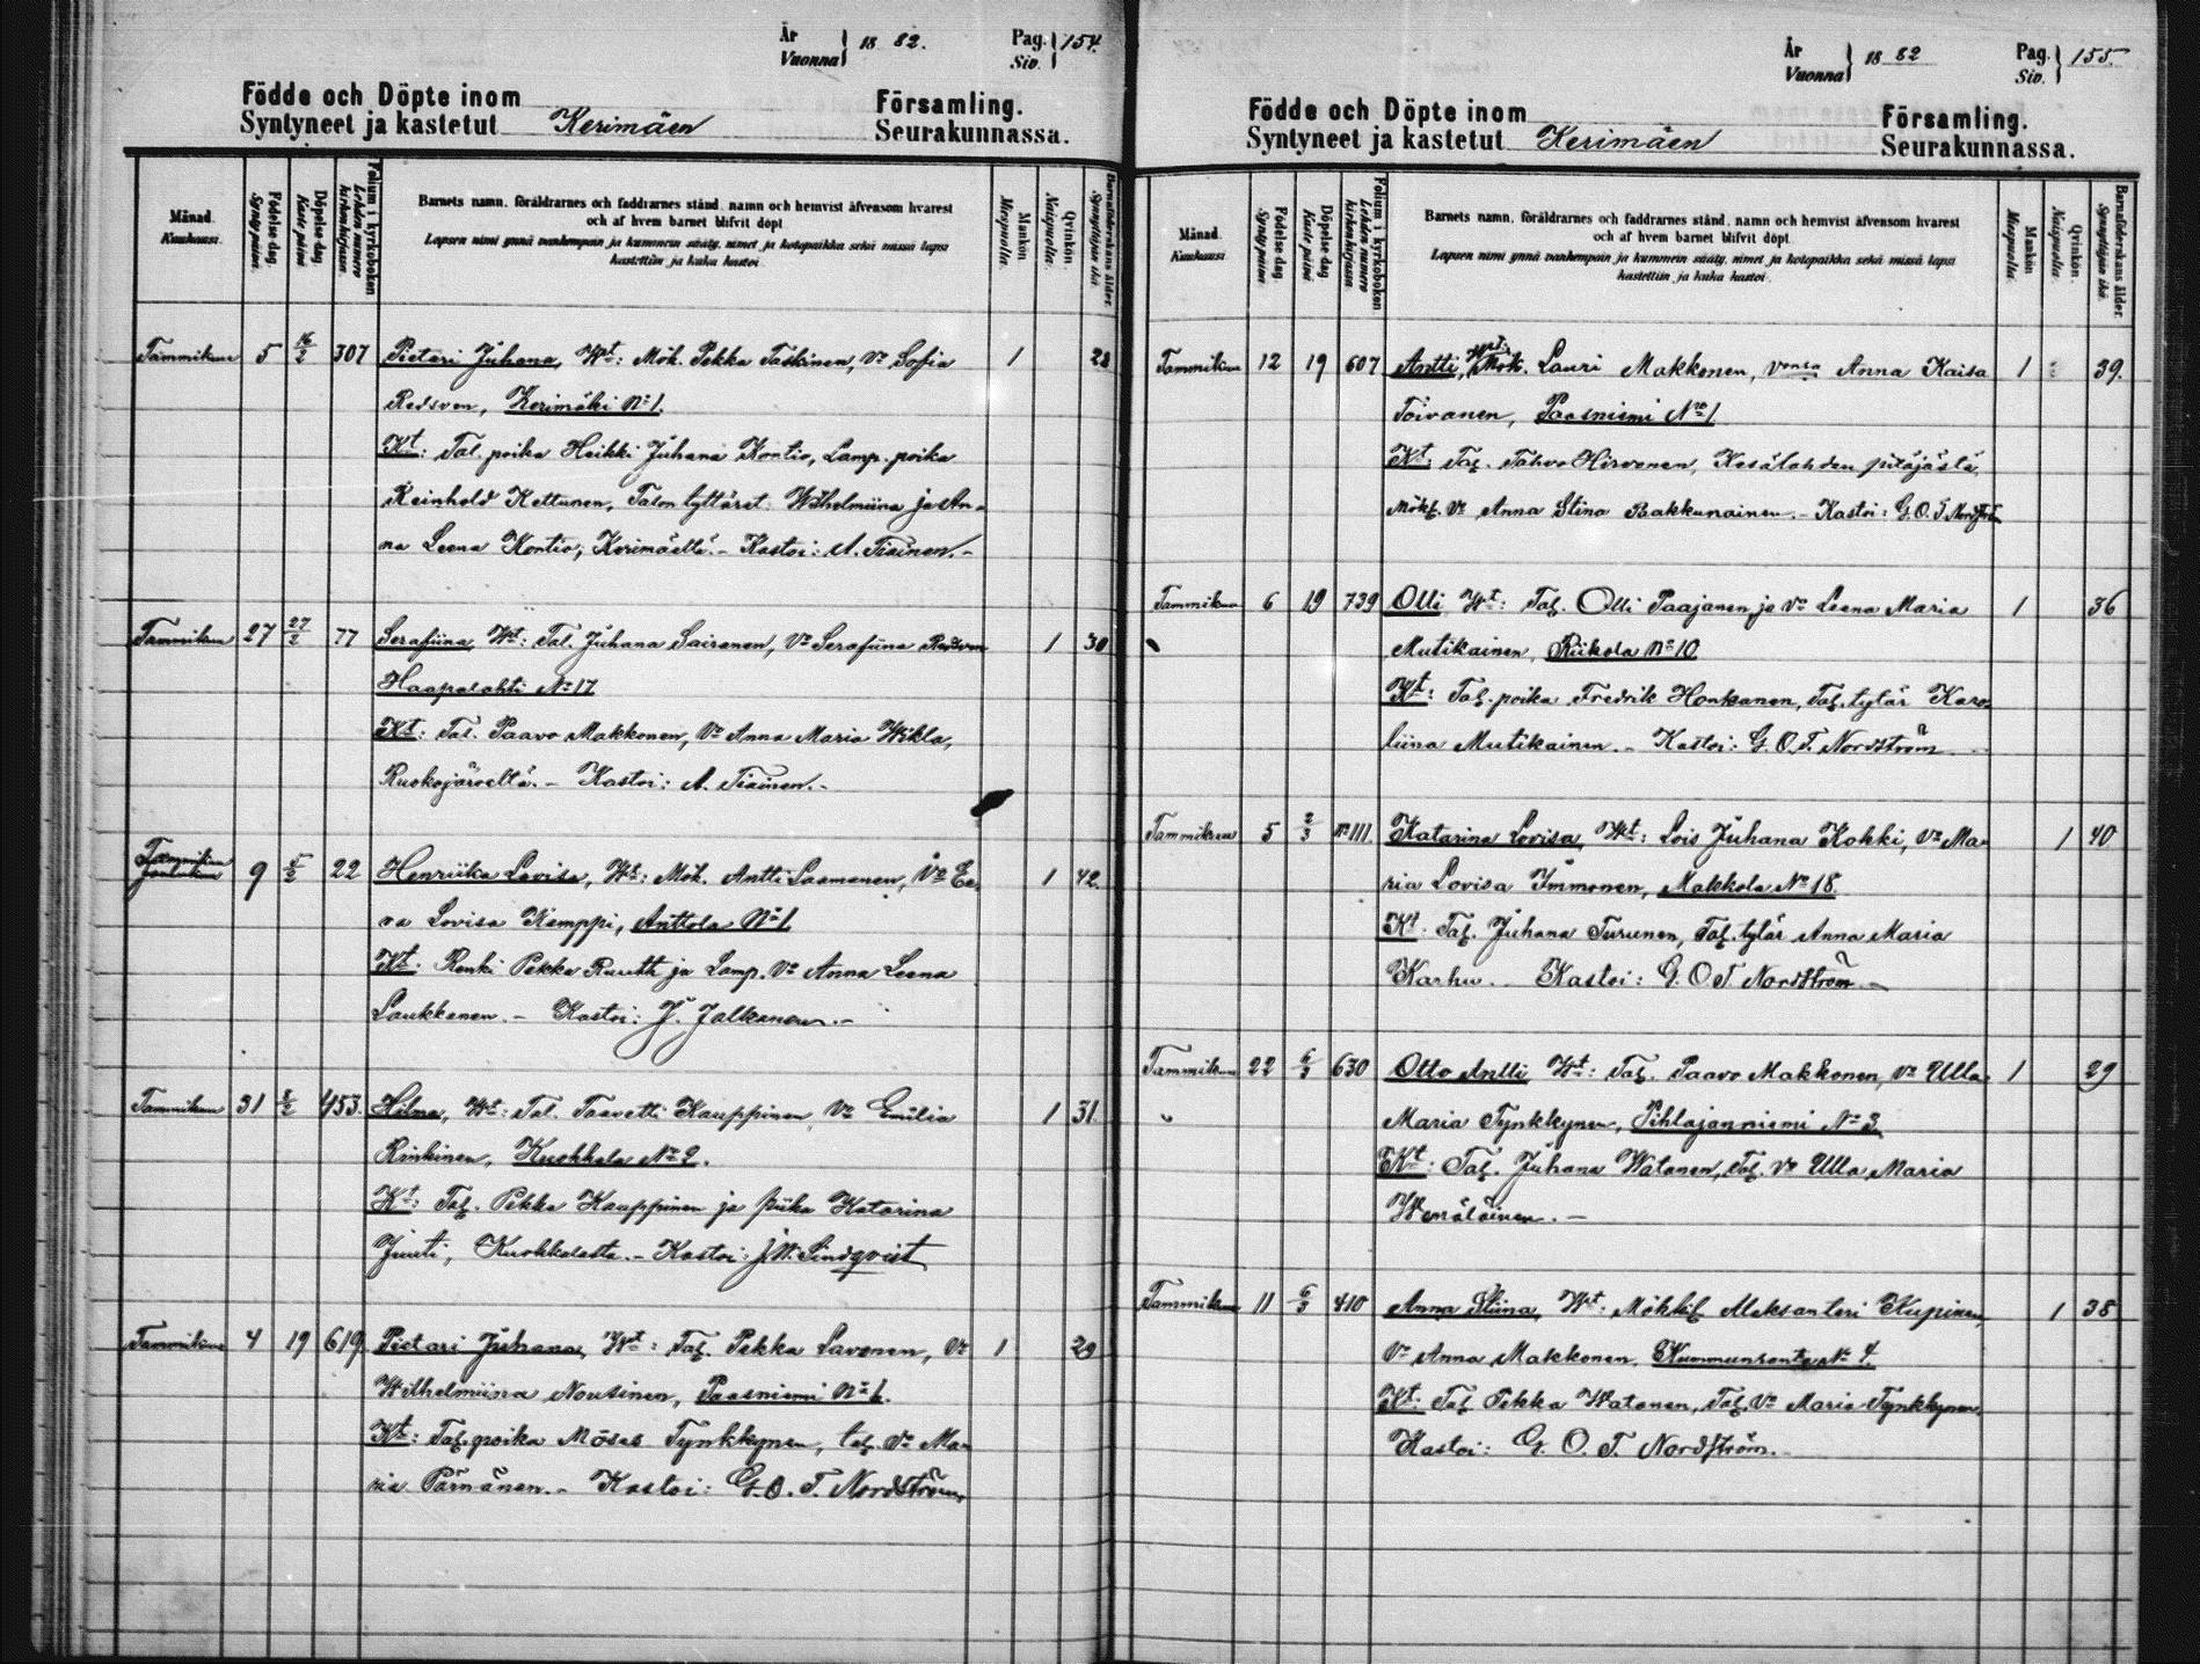 År
Vuonna } 18 82.
Pag.
Siv. } 154.
Födde och Döpte inom
Syntyneet ja kastetut Kerimäen
Församling.
Seurakunnassa.
Månad.
Kuukausi.
Födelse dag.
Synty päivä.
Döpelse dag.
Kaste päivä
Folium i kyrkoboken
Lehden numero kirkonkirjassa
Barnets namn, föräldrarnes och faddrarnes stånd, namn och hemvist äfvensom hvarest
och af hvem barnet blifvit döpt
Lapsen nimi ynnä vanhempain ja kummein sääty, nimet ja kotopaikka sekä missä lapsi
kastettiin ja kuka kastoi
Mankön
Miespuolta.
Qvinkön
Naispuolta.
Barnaföderskans ålder
Synnyttäjän ikä.
Tammikuu 5 16/2 307 Pietari Juhana, Wt: Mök. Pekka Taskinen, Vo Sofia 1 28
Redsven, Kerimäki No 1.
Kt: Tal. poika Heikki Juhana Kontio, Lamp. poika
Reinhold Kettunen, Talon tyttäret Wilhelmiina ja An-
na Leena Kontio, Kerimäeltä. - Kastoi: A. Tiainen. -
Tammikuu 27 27/2 77 Serafiina, Wt: Tal. Juhana Sairanen, Vo Serafiina Redsven 1 30
Haapalahti No 17
Kt: Tal. Paavo Makkonen, Vo Anna Maria Wikla,
Ruokojärveltä. - Kastoi: A. Tiainen. -
Tammikuu 9 5/2 22 Henriika Lovisa, Wt: Mök. Antti Laamanen, Vo Ee- 1 42.
va Lovisa Kemppi, Anttola No 1
Kt: Renki Pekka Ruutti ja Lamp. Vo Anna Leena
Laukkanen. - Kastoi: J. Jalkanen. -
Tammikuu 31 8/2 453. Hilma, Wt: Tal. Taavetti Kauppinen, Vo Emilia 1 31.
Rinkinen, Kuokkala No 2.
Kt: Tal. Pekka Kauppinen ja piika Katarina
Juuti, Kuokkalasta. - Kastoi: J. W. Lindqvist
Tammikuu 4 19 619 Pietari Juhana, Wt: Tal. Pekka Lavonen, Vo 1 29
Wilhelmiina Nousinen, Paasniemi No 6.
Kt: Tal. poika Mōses Tynkkynen, tal. Vo Ma-
ria Pärnänen. - Kastoi: G. O. T. Nordström.
År
Vuonna } 18 82
Pag.
Siv. } 155.
Födde och Döpte inom
Syntyneet ja kastetut Kerimäen
Församling.
Seurakunnassa.
Månad.
Kuukausi
Födelse dag.
Synty päivä
Döpelse dag.
Kaste päivä
Folium i kyrkoboken
Lehden numero kirkonkirjassa
Barnets namn, föräldrarnes och faddrarnes stånd, namn och hemvist äfvensom hvarest
och af hvem barnet blifvit döpt
Lapsen nimi ynnä vanhempain ja kummein sääty, nimet ja kotopaikka sekä missä lapsi
kastettiin ja kuka kastoi.
Mankön
Miespuolta.
Qvinkön.
Naispuolta.
Barnaföderskans ålder
Synnyttäjän ikä.
Tammikuu 12 19 607 Antti, Wt: Mök. Lauri Makkonen, Vonsa Anna Kaisa 1 39.
Toivanen, Paasniemi No 1
Kt: Tal. Tahvo Hirvonen, Kesälahden pitäjästä,
Mökl. Vo Anna Stina Paakkunainen. - Kastoi: G. O. T. Nordström
Tammikuu 6 19 739 Olli Wt: Tal. Olli Paajanen ja Vo Leena Maria 1 36
Mutikainen, Riikola No 10
Kt: Tal. poika Fredrik Honkanen, Tal. tytär Karo-
liina Mutikainen. - Kastoi: G. O. T. Nordström
Tammikuu 5 2/3 No 111. Katarina Lovisa, Wt: Lois Juhana Kokki, Vo Ma- 1 40
ria Lovisa Immonen, Makkola No 18.
Kt. Tal. Juhana Turunen, Tal. tytär Anna Maria
Karhu. Kastoi: G. O. T Nordström -
Tammikuu 22 6/3 630 Otto Antti Wt: Tal. Paavo Makkonen, Vo Ulla 1 29
" Maria Tynkkynen, Pihlajanniemi No 3
Kt: Tal. Juhana Watanen, Tal. Vo Ulla Maria
Wenäläinen. -
Tammikuu 11 6/3 410 Anna Stiina, Wt: Mökkil Aleksanteri Kupinen, 1 38
Vo Anna Makkonen, Kummunranta No 4.
Kt: Tal Pekka Watanen, Tal. Vo Maria Tynkkynen,
Kastoi: G. O. T. Nordström.